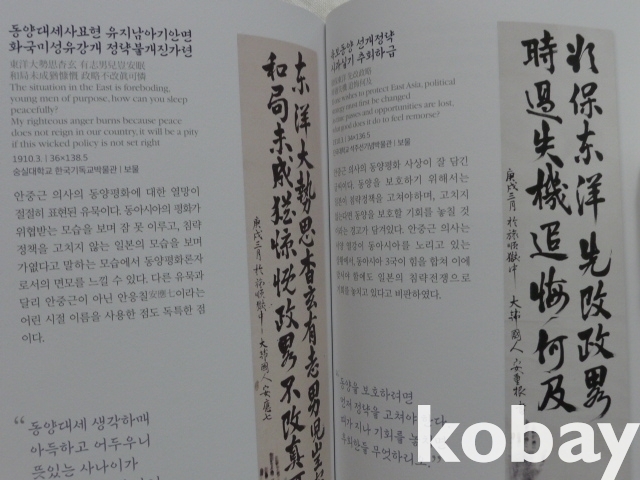 동양대세사묘현 유지남아기안면
화국미성유강개 정략불개진가련
東洋大勢思杳玄 有志男兒豈安眠
和局未成猶慷慨 政略不改眞可憐
The situation in the East is foreboding,
young men of purpose, how can you sleep
peacefully?
My righteous anger burns because peace
does not reign in our country, it will be a pity
if this wicked policy is not set right
1910.3. | 36×138.5
숭실대학교 한국기독교박물관 | 보물
안중근 의사의 동양평화에 대한 열망이
절절히 표현된 유묵이다. 동아시아의 평화가
위협받는 모습을 보며 잠 못 이루고, 침략
정책을 고치지 않는 일본의 모습을 보며
가엾다고 말하는 모습에서 동양평화론자
로서의 면모를 느낄 수 있다. 다른 유묵과
달리 안중근이 아닌 안응칠安應七이라는
어린 시절 이름을 사용한 점도 독특한 점
이다.
동양대세 생각하매
아득하고 어두우니
뜻있는 사나이가
东洋大勢思杳玄有志男児豈
和局未成猶慷慨政略不改真可
庚戌三月 於旅順獄中 大韓國人 安應七
동양 선개정략
추회하급
wishes to protect East Asia, political
must first be changed
passes and opportunities are lost,
do to feel remorse?
36×136.5
| 보물
안중근 의사의 동양평화 사상이 잘 담긴
동양을 보호하기 위해서는
침략정책을 고쳐야하며, 고치지
동양을 보호할 기회를 놓칠 것
안중근 의사는
동아시아를 노리고 있는
동아시아 3국이 힘을 합쳐 이에
함에도 일본의 침략전쟁으로
기회를 놓치고 있다고 비판하였다.
동양을 보호하려면
먼저 정략을 고쳐야
때가 지나 기회를 놓
후회한들 무엇하리
保东洋先改政略
時過失機追悔何及
庚戌三月 於旅順獄中 大韓國人 安重根
kobay